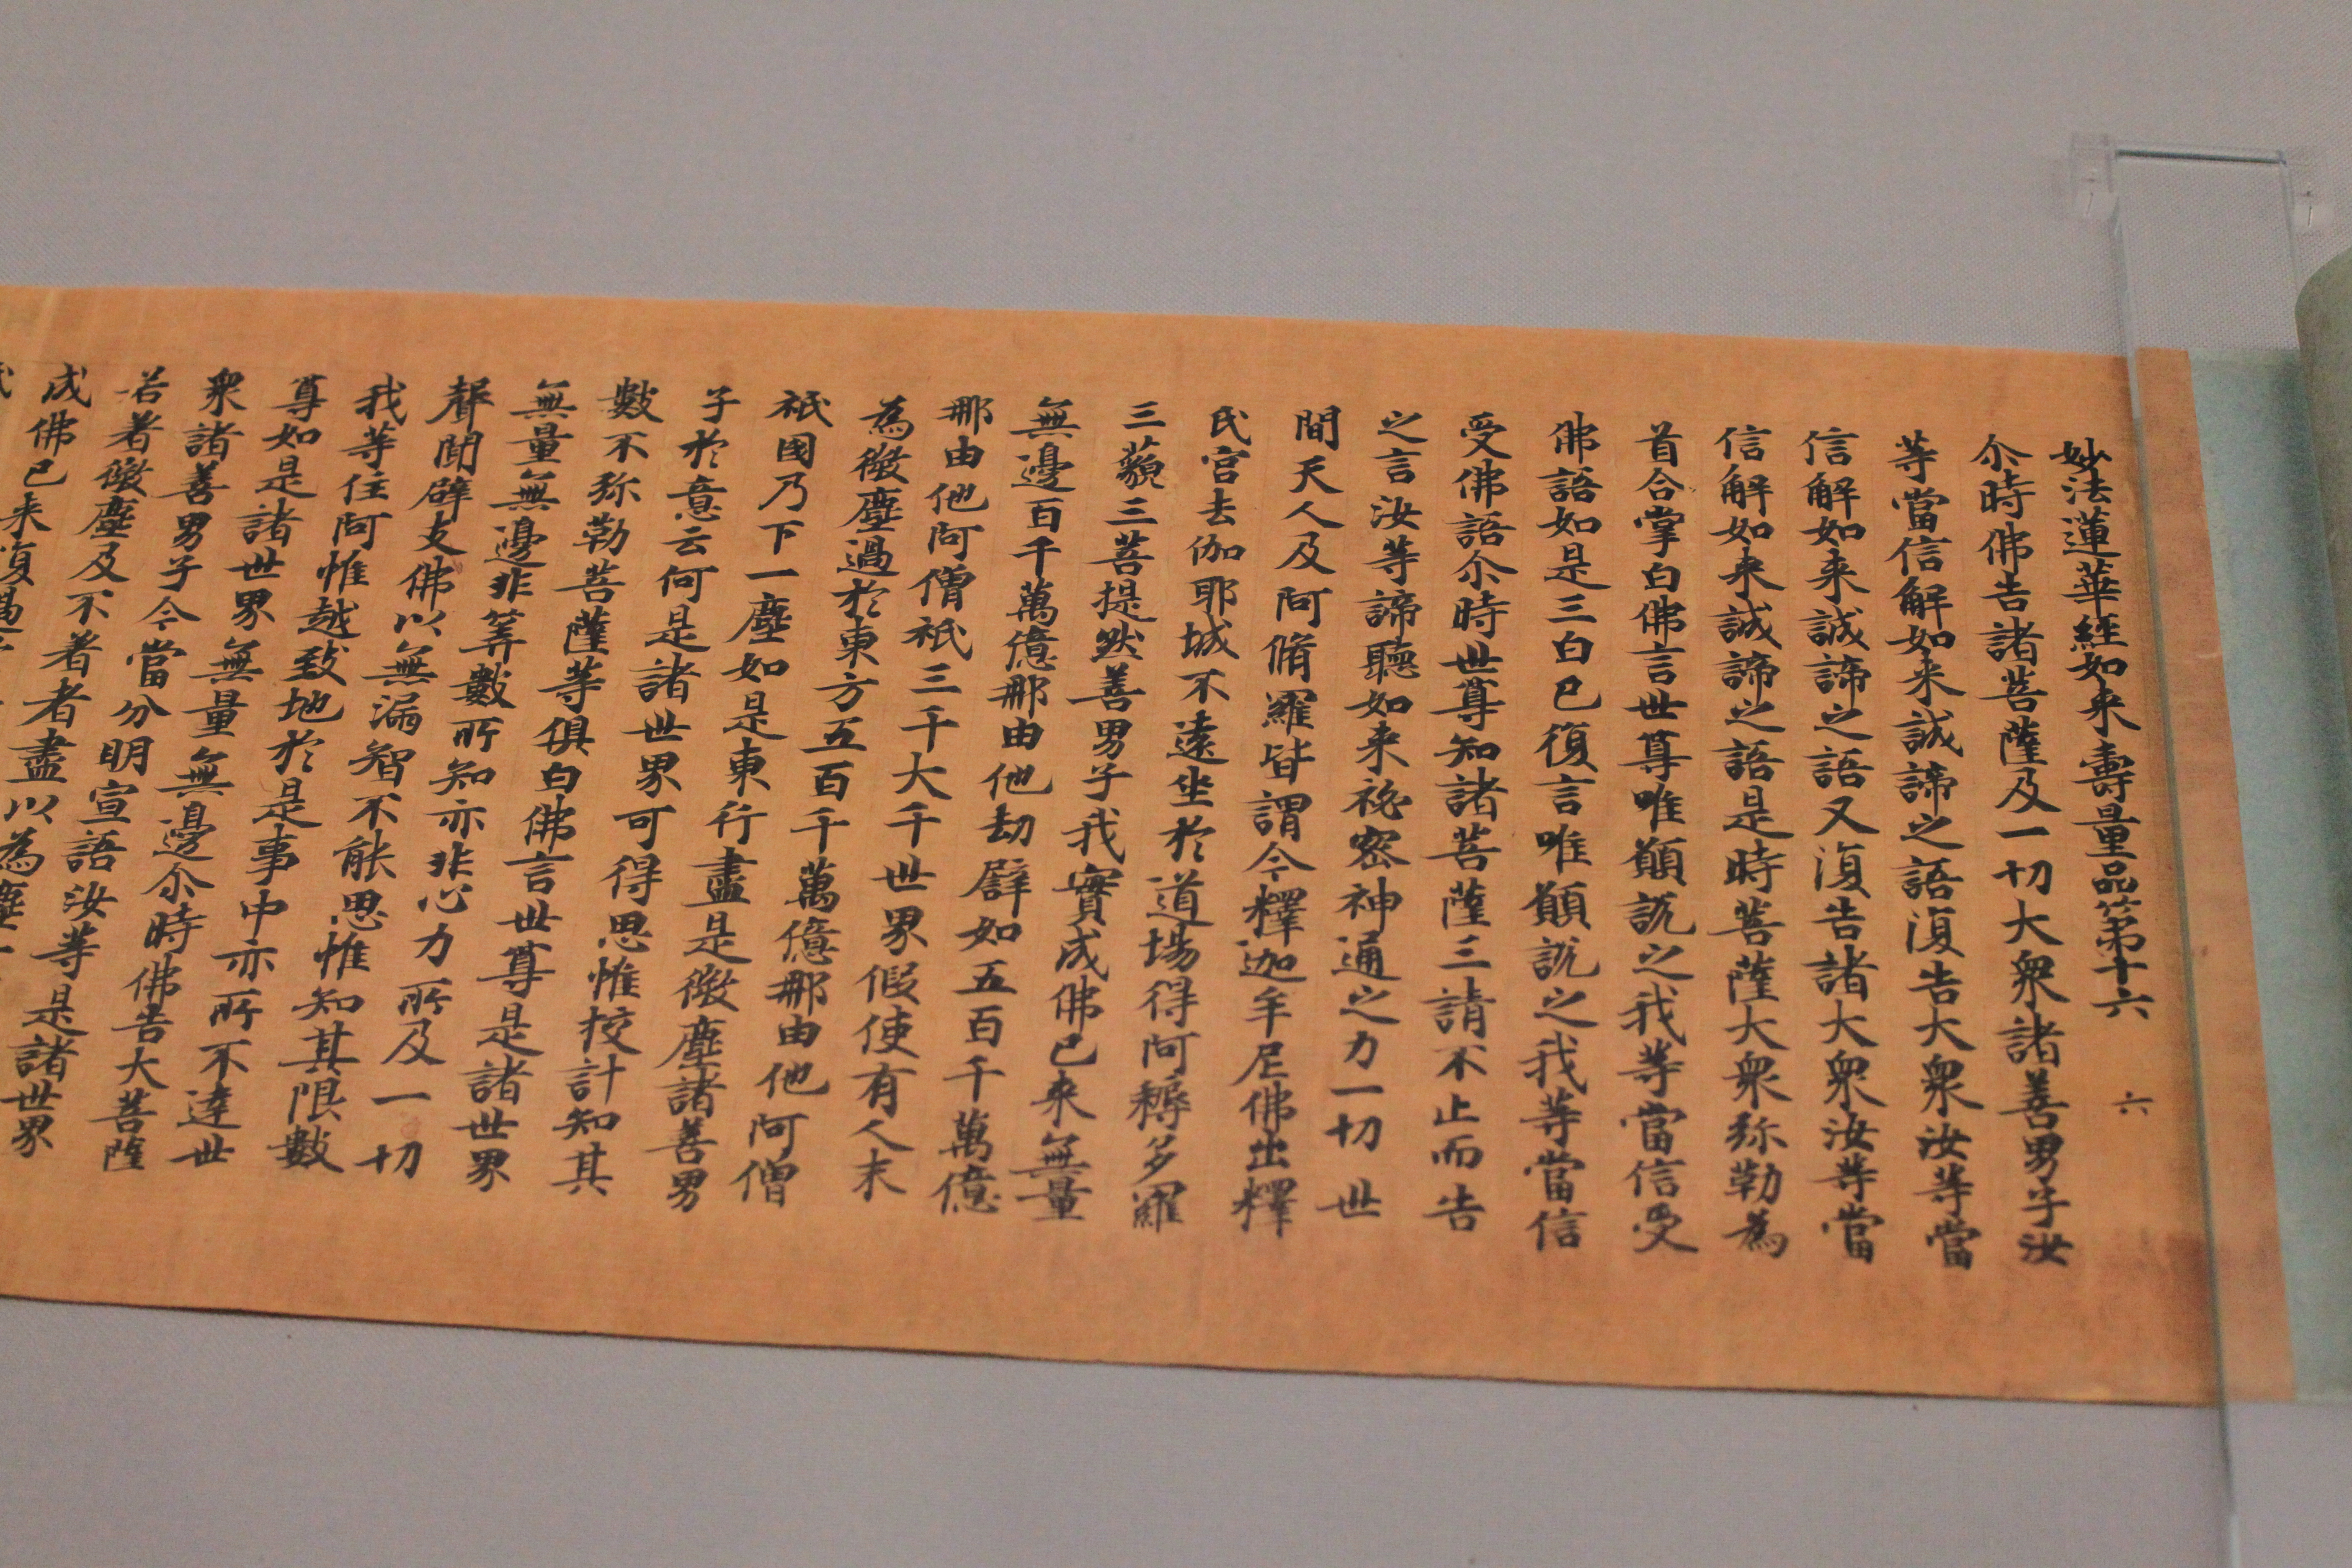 妙法蓮華經如来壽量品第十六 六
尒時佛告諸菩薩及一切大衆諸善男子汝
等當信解如来誠諦之語復告大衆汝等當
信解如来誠諦之語又復告諸大衆汝等當
信解如来誠諦之語是時菩薩大衆弥勒為
首合掌白佛言世尊唯願說之我等當信受
佛語如是三白已復言唯願說之我等當信
受佛語尒時世尊知諸菩薩三請不止而告
之言汝等諦聽如来秘密神通之力一切世
間天人及阿脩羅皆謂今釋迦牟尼佛出釋
氏宮去伽耶城不遠坐於道場得阿耨多羅
三藐三菩提然善男子我實成佛已来無量
無邊百千萬億那由他劫譬如五百千萬億
那由他阿僧祇三千大千世界假使有人末
為微塵過於東方五百千萬億那由他阿僧
祇國乃下一塵如是東行盡是微塵諸善男
子於意云何是諸世界可得思惟挍計知其
數不弥勒菩薩等俱白佛言世尊是諸世界
無量無邊非筭數所知亦非心力所及一切
聲聞辟支佛以無漏智不能思惟知其限數
我等住阿惟越致地於是事中亦所不達世
尊如是諸世界無量無邊尒時佛告大菩薩
衆諸善男子今當分明宣語汝等是諸世界
若著微塵及不著者盡以為塵
成佛已来復過